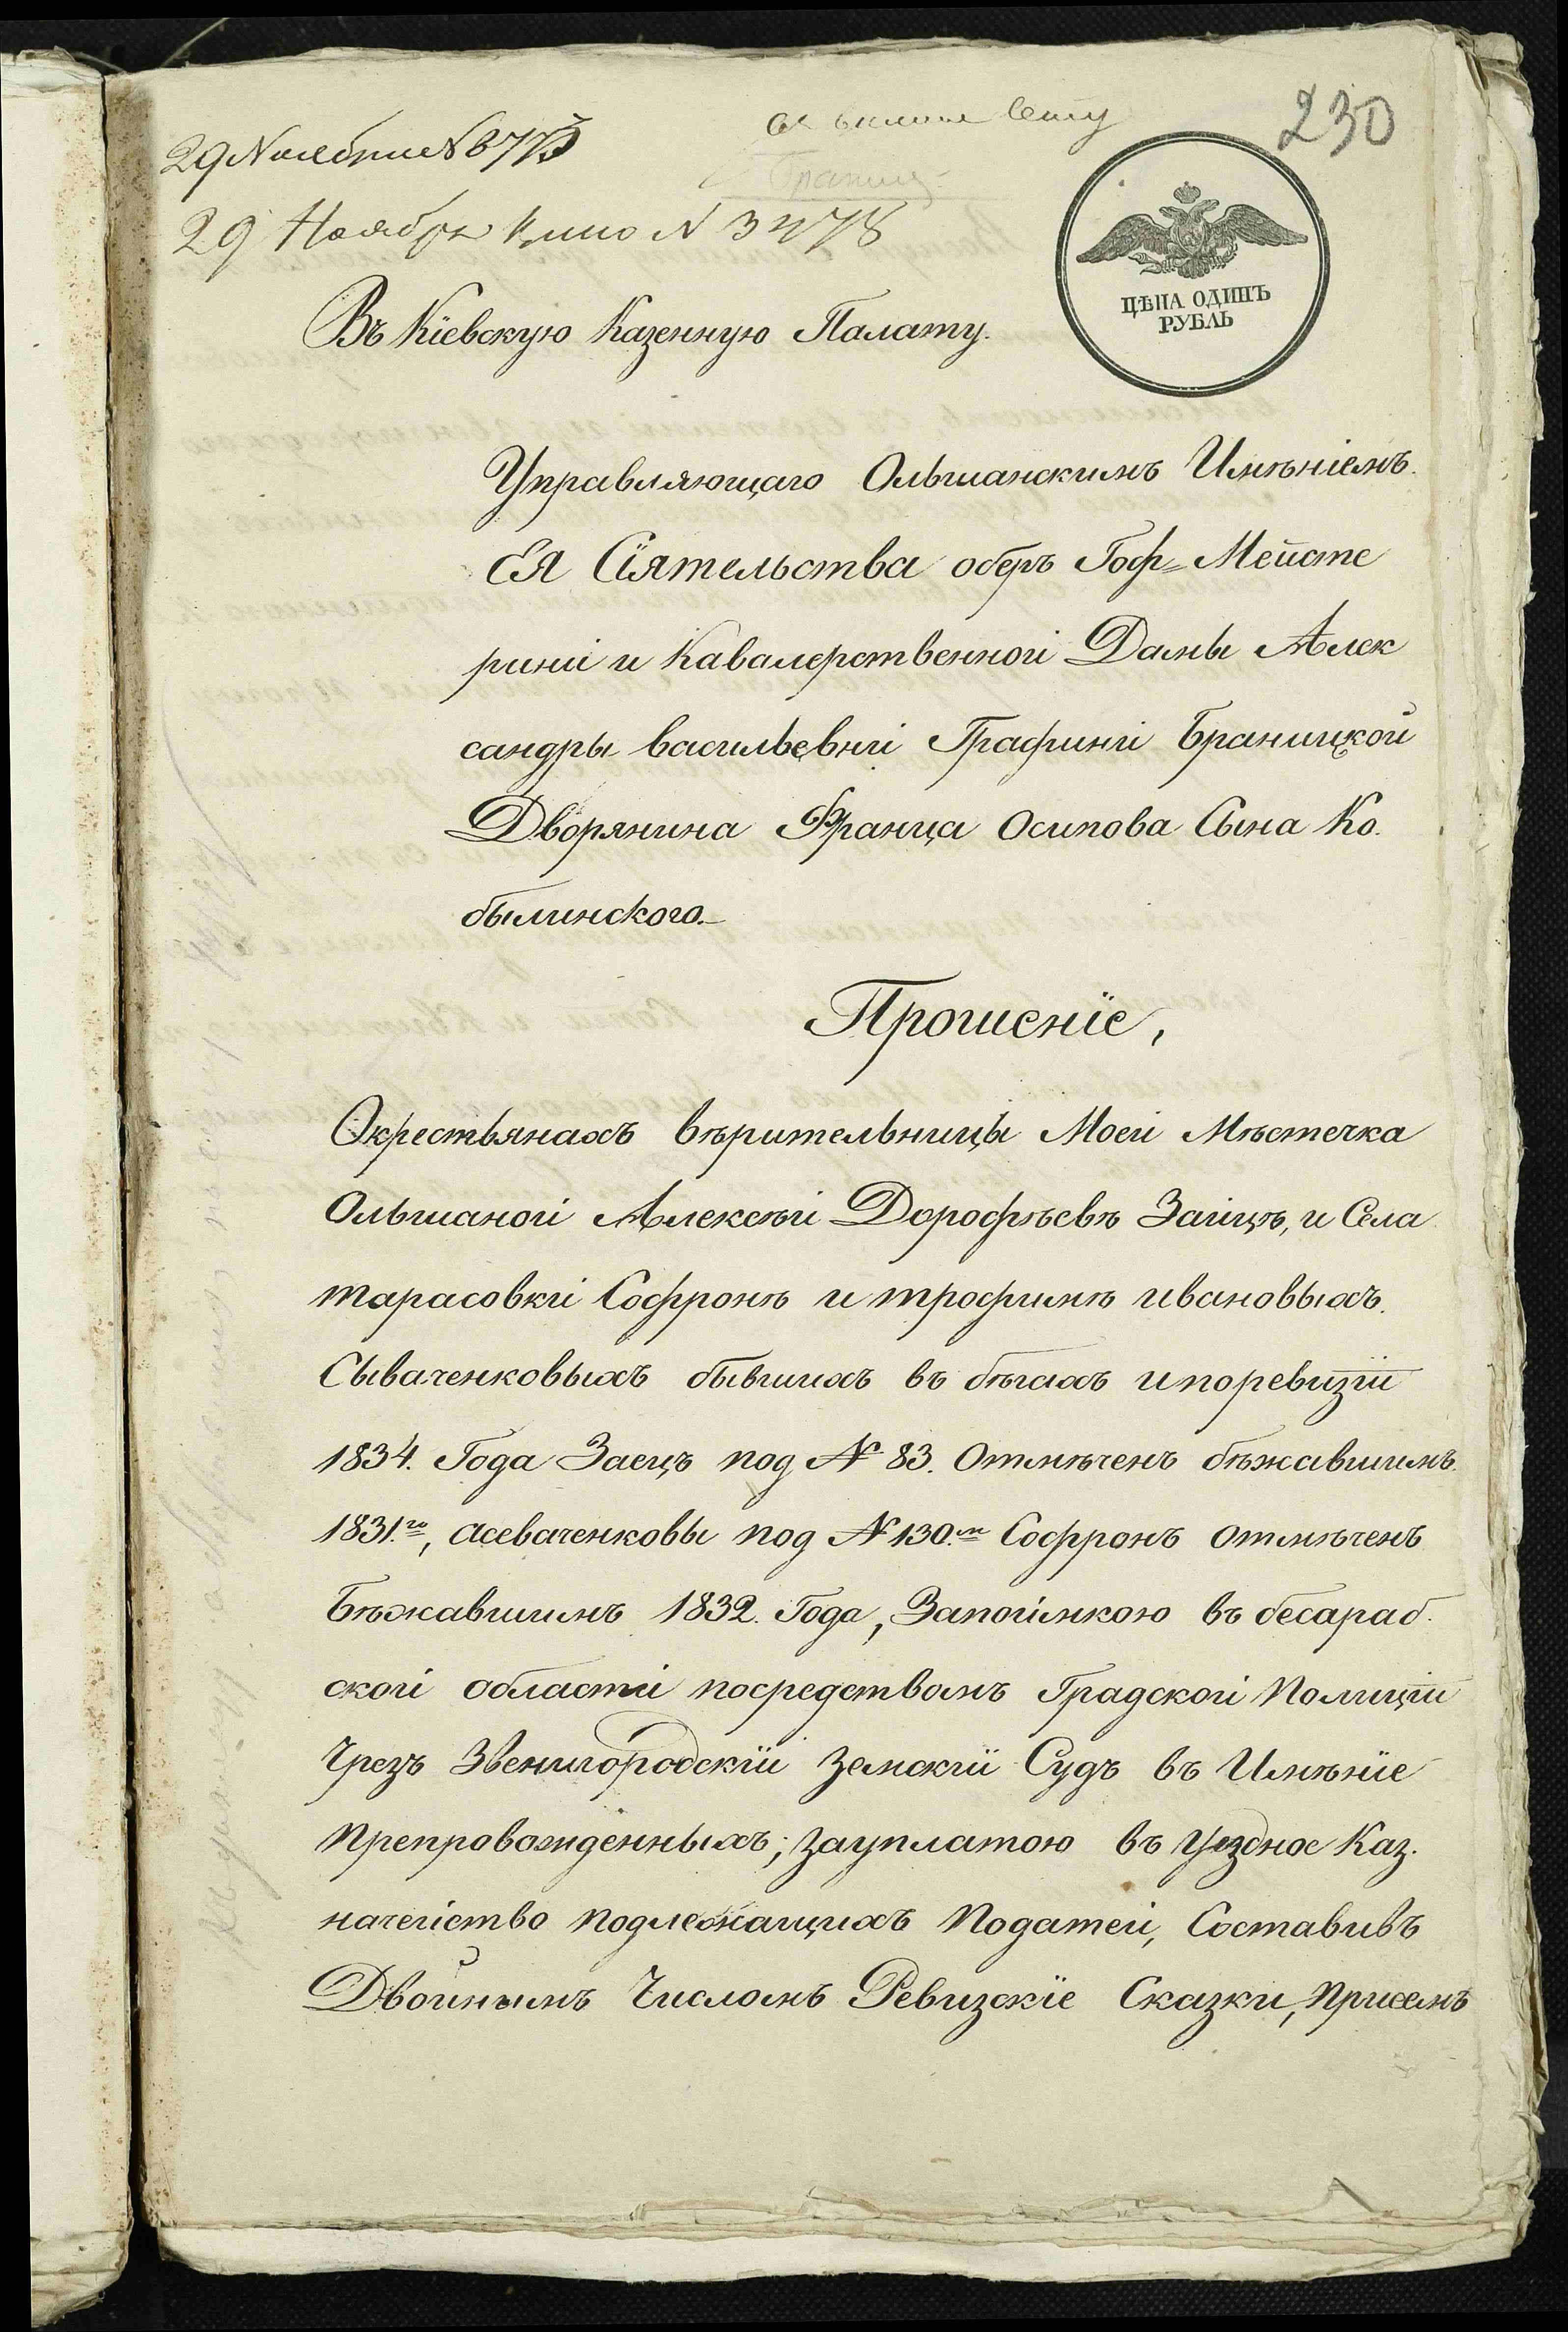 230
29 Ноября № 8773
29 Ноября № 3478
ЦѢНА ОДИНЪ
РУБЛЬ
Въ Кіевскую Казенную Палату.
Управляющаго Ольшанскимъ Имѣніемъ
ЕЯ Сіятельства оберъ Гоф-Мейсте
рини и Кавалерственной Дамы Алек
сандры васильевни Графини Браницкой
Дворянина Франца Осипова Сына Ко
былинского.
Прошеніе,
Окрестьянахъ вѣрительницы Моей Мѣстечка
Ольшаной Алексѣй Дорофѣевѣ Зайцѣ, и Села
тарасовки Софронѣ и трофимѣ ивановыхъ
Сываченковыхъ бывшихъ въ бѣгахъ ипоревизіи
1834. Года Заецъ под № 83. Отмѣченъ бѣжавшимъ
1831.го, асеваченковы под № 130.м Софронъ отмѣченъ
Бѣжавшимъ 1832. Года, Запоимкою въ бесараб
ской области посредствомъ Градской Полиціи
Чрезъ Звенигородскій Земскій Судъ въ Имѣніе
Препровожденныхъ; Зауплатою въ уездное Каз
начейство подлежащихъ Податей, Составивъ
Двойнымъ Числомъ Ревизскіе Сказки, присемъ